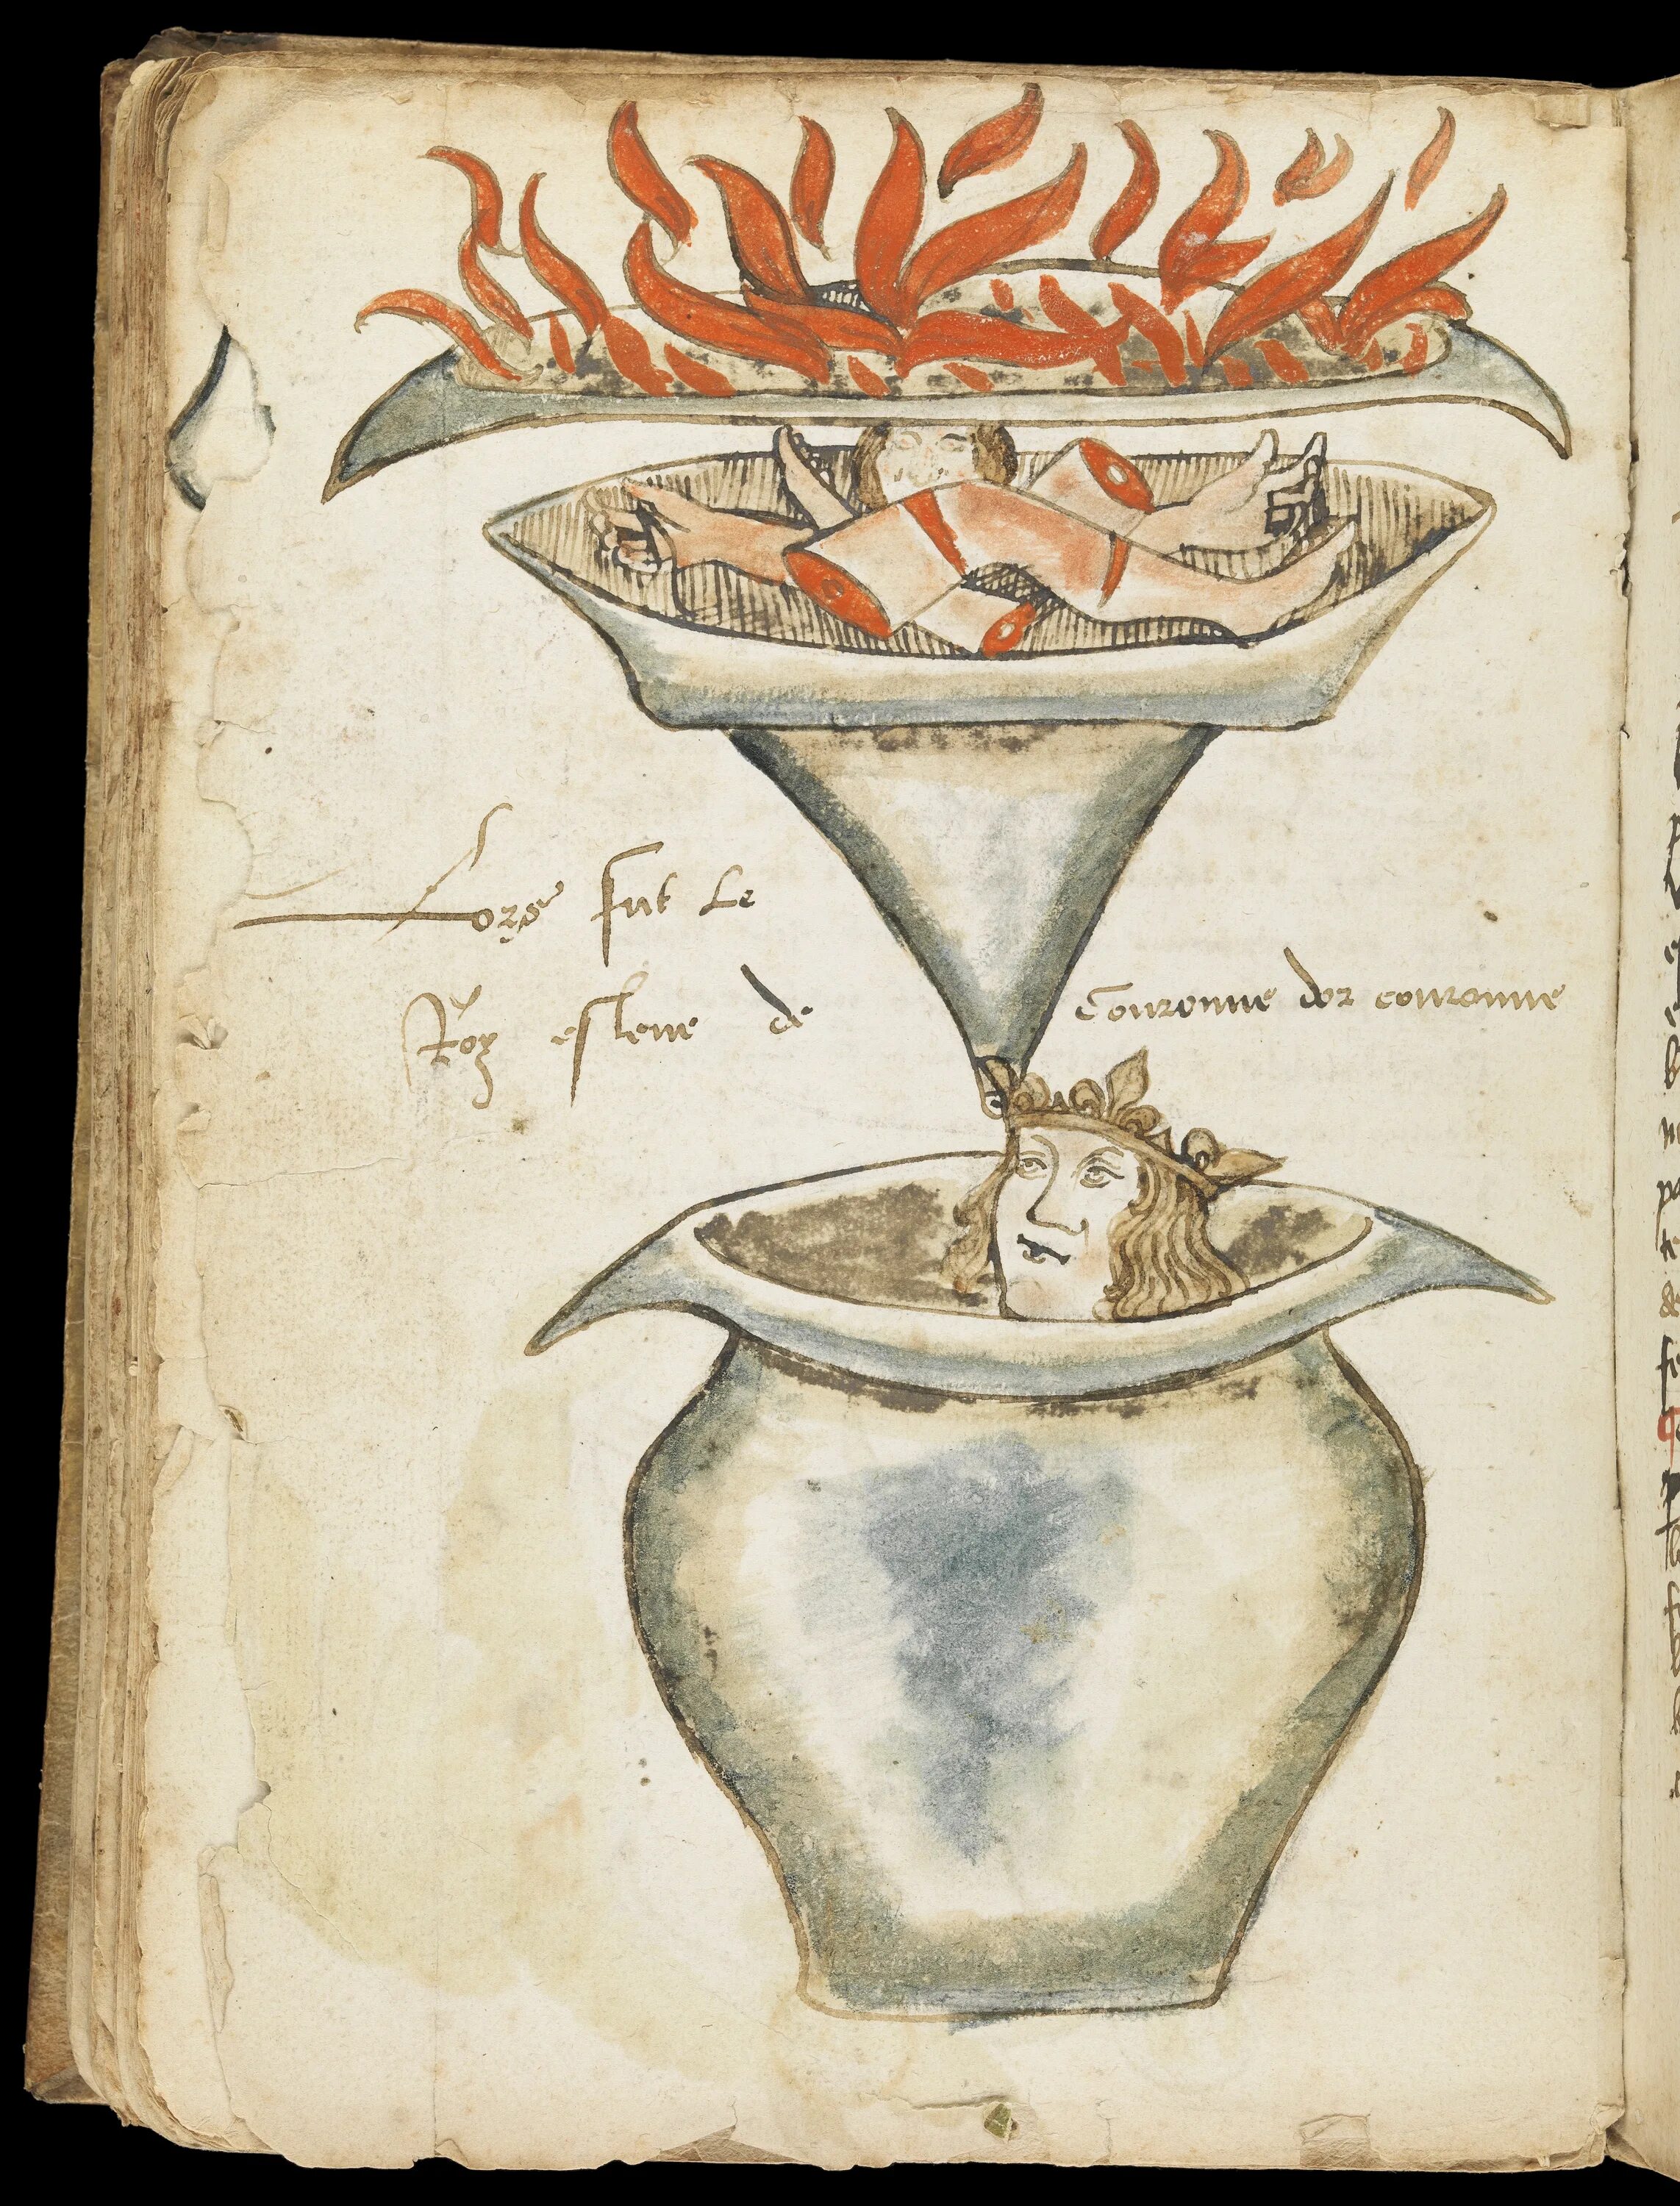 Lors fut le
Roy esleve de couronne dor couronne